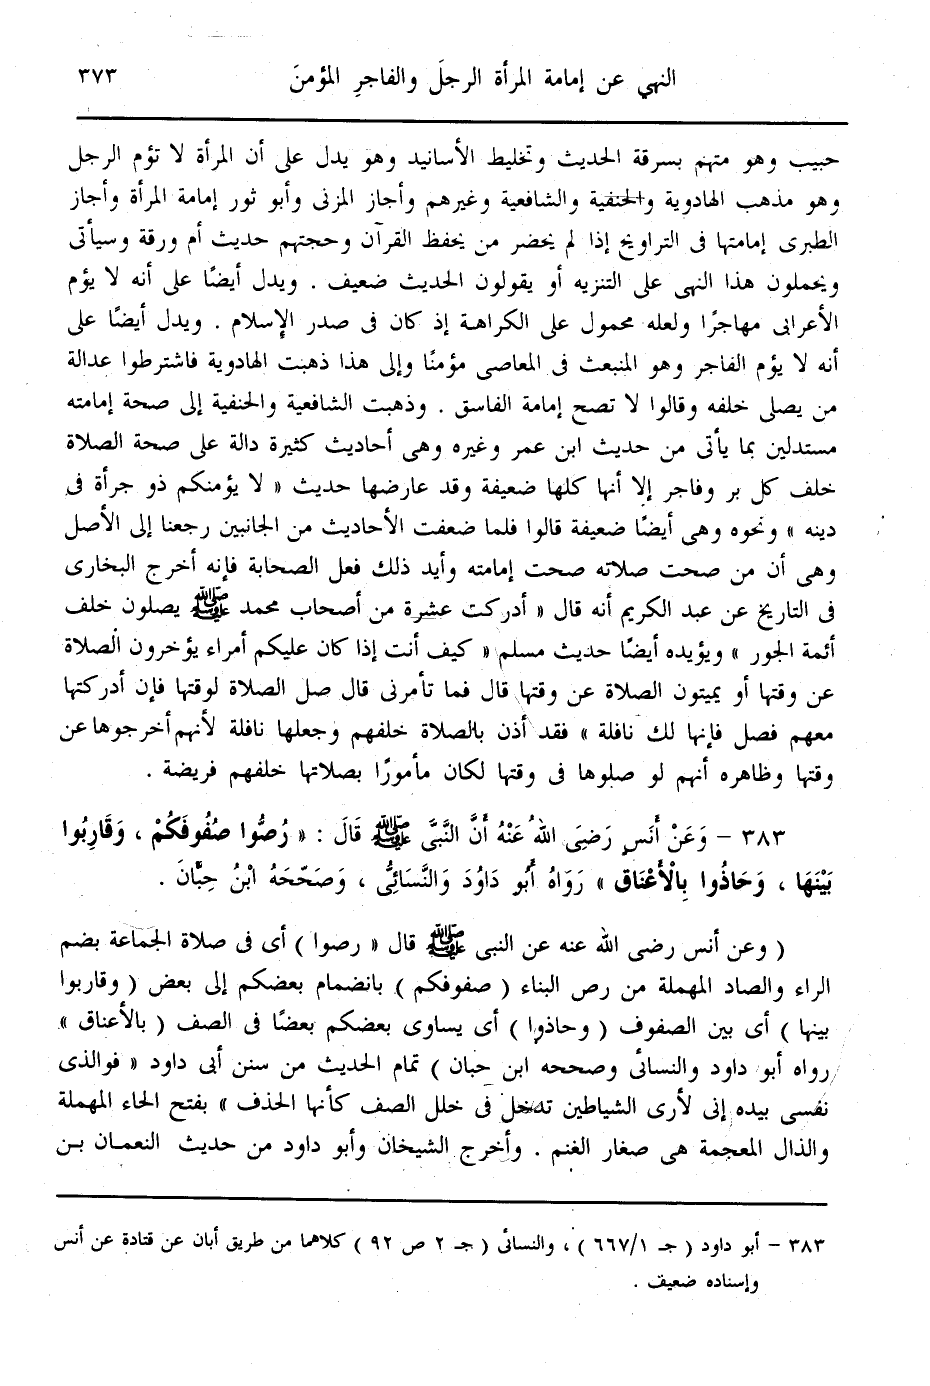 النهي عن إمامة المرأة الرجلَ والفاجرِ المؤمنَ ٣٧٣
حبيب وهو متهم بسرقة الحديث وتخليط الأسانيد وهو يدل على أن المرأة لا تؤم الرجل
وهو مذهب الهادوية والحنفية والشافعية وغيرهم وأجاز المزنى وأبو ثور إمامة المرأة وأجاز
الطبرى إمامتها فى التراويح إذا لم يحضر من يحفظ القرآن وحجتهم حديث أم ورقة وسيأتى
ويحملون هذا النهى على التنزيه أو يقولون الحديث ضعيف . ويدل أيضًا على أنه لا يؤم
الأعرابى مهاجرًا ولعله محمول على الكراهة إذ كان فى صدر الإسلام . ويدل أيضًا على
أنه لا يؤم الفاجر وهو المنبعث فى المعاصى مؤمنًا وإلى هذا ذهبت الهادوية فاشترطوا عدالة
من يصلى خلفه وقالوا لا تصح إمامة الفاسق . وذهبت الشافعية والحنفية إلى صحة إمامته
مستدلين بما يأتى من حديث ابن عمر وغيره وهى أحاديث كثيرة دالة على صحة الصلاة
خلف كل بر وفاجر إلا أنها كلها ضعيفة وقد عارضها حديث « لا يؤمنكم ذو جرأة فى
دينه » ونحوه وهى أيضًا ضعيفة قالوا فلما ضعفت الأحاديث من الجانبين رجعنا إلى الأصل
وهى أن من صحت صلاته صحت إمامته وأيد ذلك فعل الصحابة فإنه أخرج البخارى
فى التاريخ عن عبد الكريم أنه قال « أدركت عشرة من أصحاب محمد ﷺ يصلون خلف
أئمة الجور » ويؤيده أيضًا حديث مسلم « كيف أنت إذا كان عليكم أمراء يؤخرون الصلاة
عن وقتها أو يميتون الصلاة عن وقتها قال فما تأمرنى قال صل الصلاة لوقتها فإن أدركتها
معهم فصل فإنها لك نافلة » فقد أذن بالصلاة خلفهم وجعلها نافلة لأنهم أخرجوها عن
وقتها وظاهره أنهم لو صلوها فى وقتها لكان مأمورًا بصلاتها خلفهم فريضة .
٣٨٣ – وَعَنْ أَنَسٍ رَضِىَ اللهُ عَنْهُ أَنَّ النَّبىَّ ﷺ قَالَ : « رُصُّوا صُفُوفَكُمْ ، وَقَارِبُوا
بَيْنَهَا ، وَحَاذُوا بِالْأَعْنَاق » رَوَاهُ أَبُو دَاوُدَ وَالنَّسَائِىُّ ، وَصَحَّحَهُ ابْنُ حِبَّانَ .
( وعن أنس رضى الله عنه عن النبى ﷺ قال « رصوا ) أى فى صلاة الجماعة بضم
الراء والصاد المهملة من رص البناء ( صفوفكم ) بانضمام بعضكم إلى بعض ( وقاربوا
بينها ) أى بين الصفوف ( وحاذوا ) أى يساوى بعضكم بعضًا فى الصف ( بالأعناق »
رواه أبو داود والنسائى وصححه ابن حبان ) تمام الحديث من سنن أبى داود « فوالذى
نفسى بيده إنى لأرى الشياطين تدخل فى خلل الصف كأنها الحذف » بفتح الحاء المهملة
والذال المعجمة هى صغار الغنم . وأخرج الشيخان وأبو داود من حديث النعمان بن
٣٨٣ – أبو داود ( جـ ٦٦٧/١ ) ، والنسائى ( جـ ٢ ص ٩٢ ) كلاهما من طريق أبان عن قتادة عن أنس
وإسناده ضعيف .